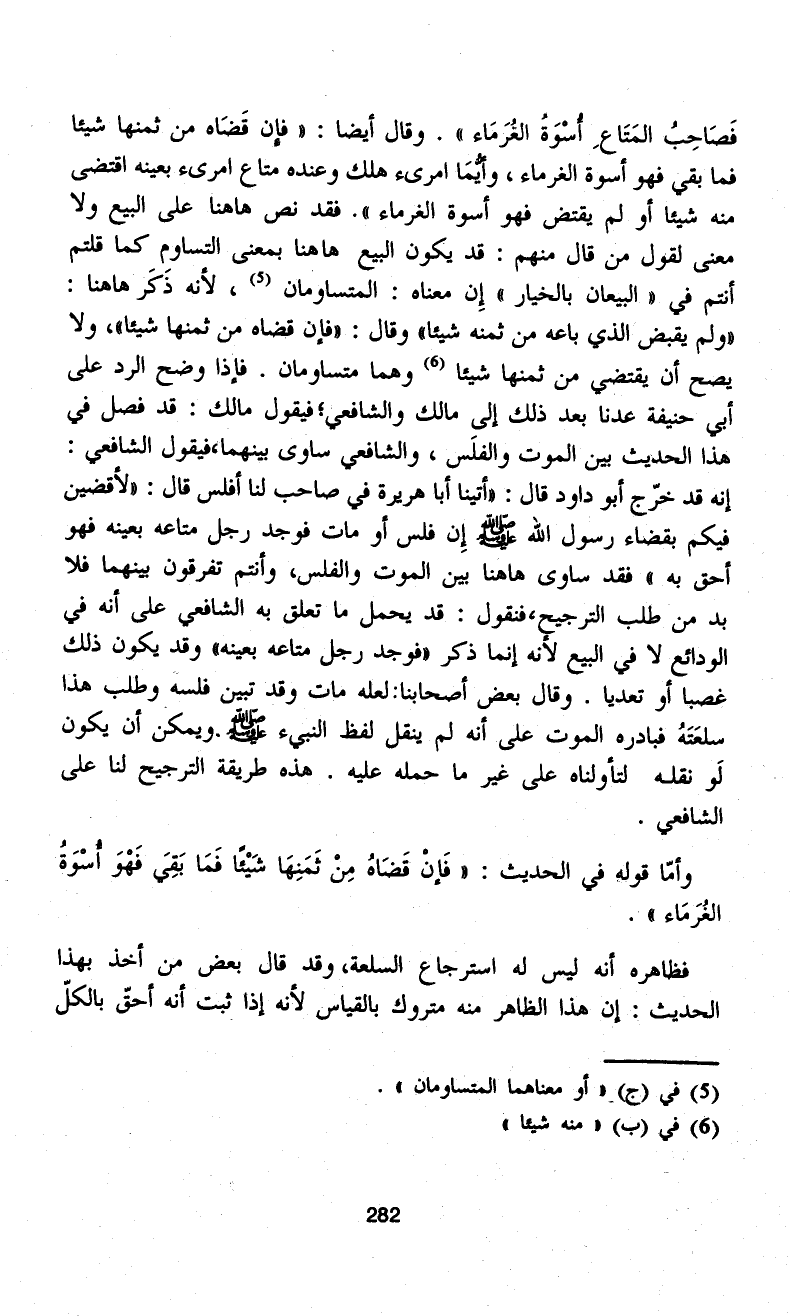 فَصَاحِبُ المَتَاعِ أُسْوَةُ الغُرَمَاء » . وقال أيضا : « فإن قَضَاه من ثمنها شيئا
فما بقي فهو أسوة الغرماء ، وأَيُّمَا امرىء هلك وعنده متاع امرىء بعينه اقتضى
منه شيئا أو لم يقتض فهو أسوة الغرماء ». فقد نص هاهنا على البيع ولا
معنى لقول من قال منهم : قد يكون البيع هاهنا بمعنى التساوم كما قلتم
أنتم في « البيعان بالخيار » إن معناه : المتساومان (5) ، لأنه ذَكَر هاهنا :
«ولم يقبض الذي باعه من ثمنه شيئا» وقال : «فإن قضاه من ثمنها شيئا»، ولا
يصح أن يقتضي من ثمنها شيئا (6) وهما متساومان . فإذا وضح الرد على
أبي حنيفة عدنا بعد ذلك إلى مالك والشافعي؛ فيقول مالك : قد فصل في
هذا الحديث بين الموت والفلَس ، والشافعي ساوى بينهما،فيقول الشافعي :
إنه قد خرّج أبو داود قال : «أتينا أبا هريرة في صاحب لنا أفلس قال : «لأقضين
فيكم بقضاء رسول الله ﷺ إن فلس أو مات فوجد رجل متاعه بعينه فهو
أحق به » فقد ساوى هاهنا بين الموت والفلس، وأنتم تفرقون بينهما فلا
بد من طلب الترجيح،فنقول : قد يحمل ما تعلق به الشافعي على أنه في
الودائع لا في البيع لأنه إنما ذكر «فوجد رجل متاعه بعينه» وقد يكون ذلك
غصبا أو تعديا . وقال بعض أصحابنا:لعله مات وقد تبين فلسه وطلب هذا
سلعَتَهُ فبادره الموت على أنه لم ينقل لفظ النبيء ﷺ .ويمكن أن يكون
لَو نقله لتأولناه على غير ما حمله عليه . هذه طريقة الترجيح لنا على
الشافعي .
وأمّا قوله في الحديث : « فَإنْ قَضَاهُ مِنْ ثَمَنِهَا شَيْئًا فَمَا بَقِيَ فَهْوَ أُسْوَةُ
الغُرَمَاء » .
فظاهره أنه ليس له استرجاع السلعة، وقد قال بعض من أخذ بهذا
الحديث : إن هذا الظاهر منه متروك بالقياس لأنه إذا ثبت أنه أحقّ بالكلّ
(5) في (ج) « أو معناهما المتساومان » .
(6) في (ب) « منه شيئا »
282